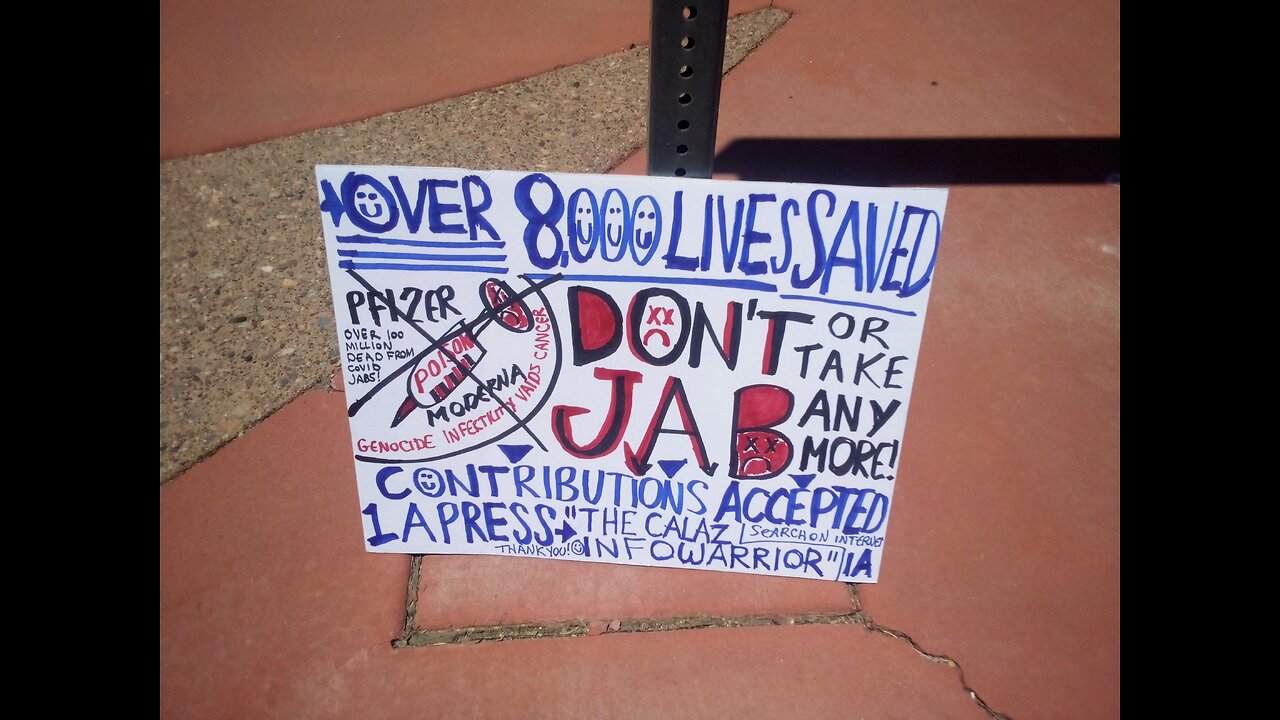 OVER 8,000 LIVES SAVED
PFIZER
OVER 100
MILLION
DEAD FROM
COVID
JABS!
POISON
MODERNA
GENOCIDE INFERTILITY VAIDS CANCER
DON'T
JAB
OR
TAKE
ANY
MORE!
CONTRIBUTIONS ACCEPTED
1APRESS "THE CALAZ
SEARCH ON INTERNET
THANK YOU! INFOWARRIOR" 1A